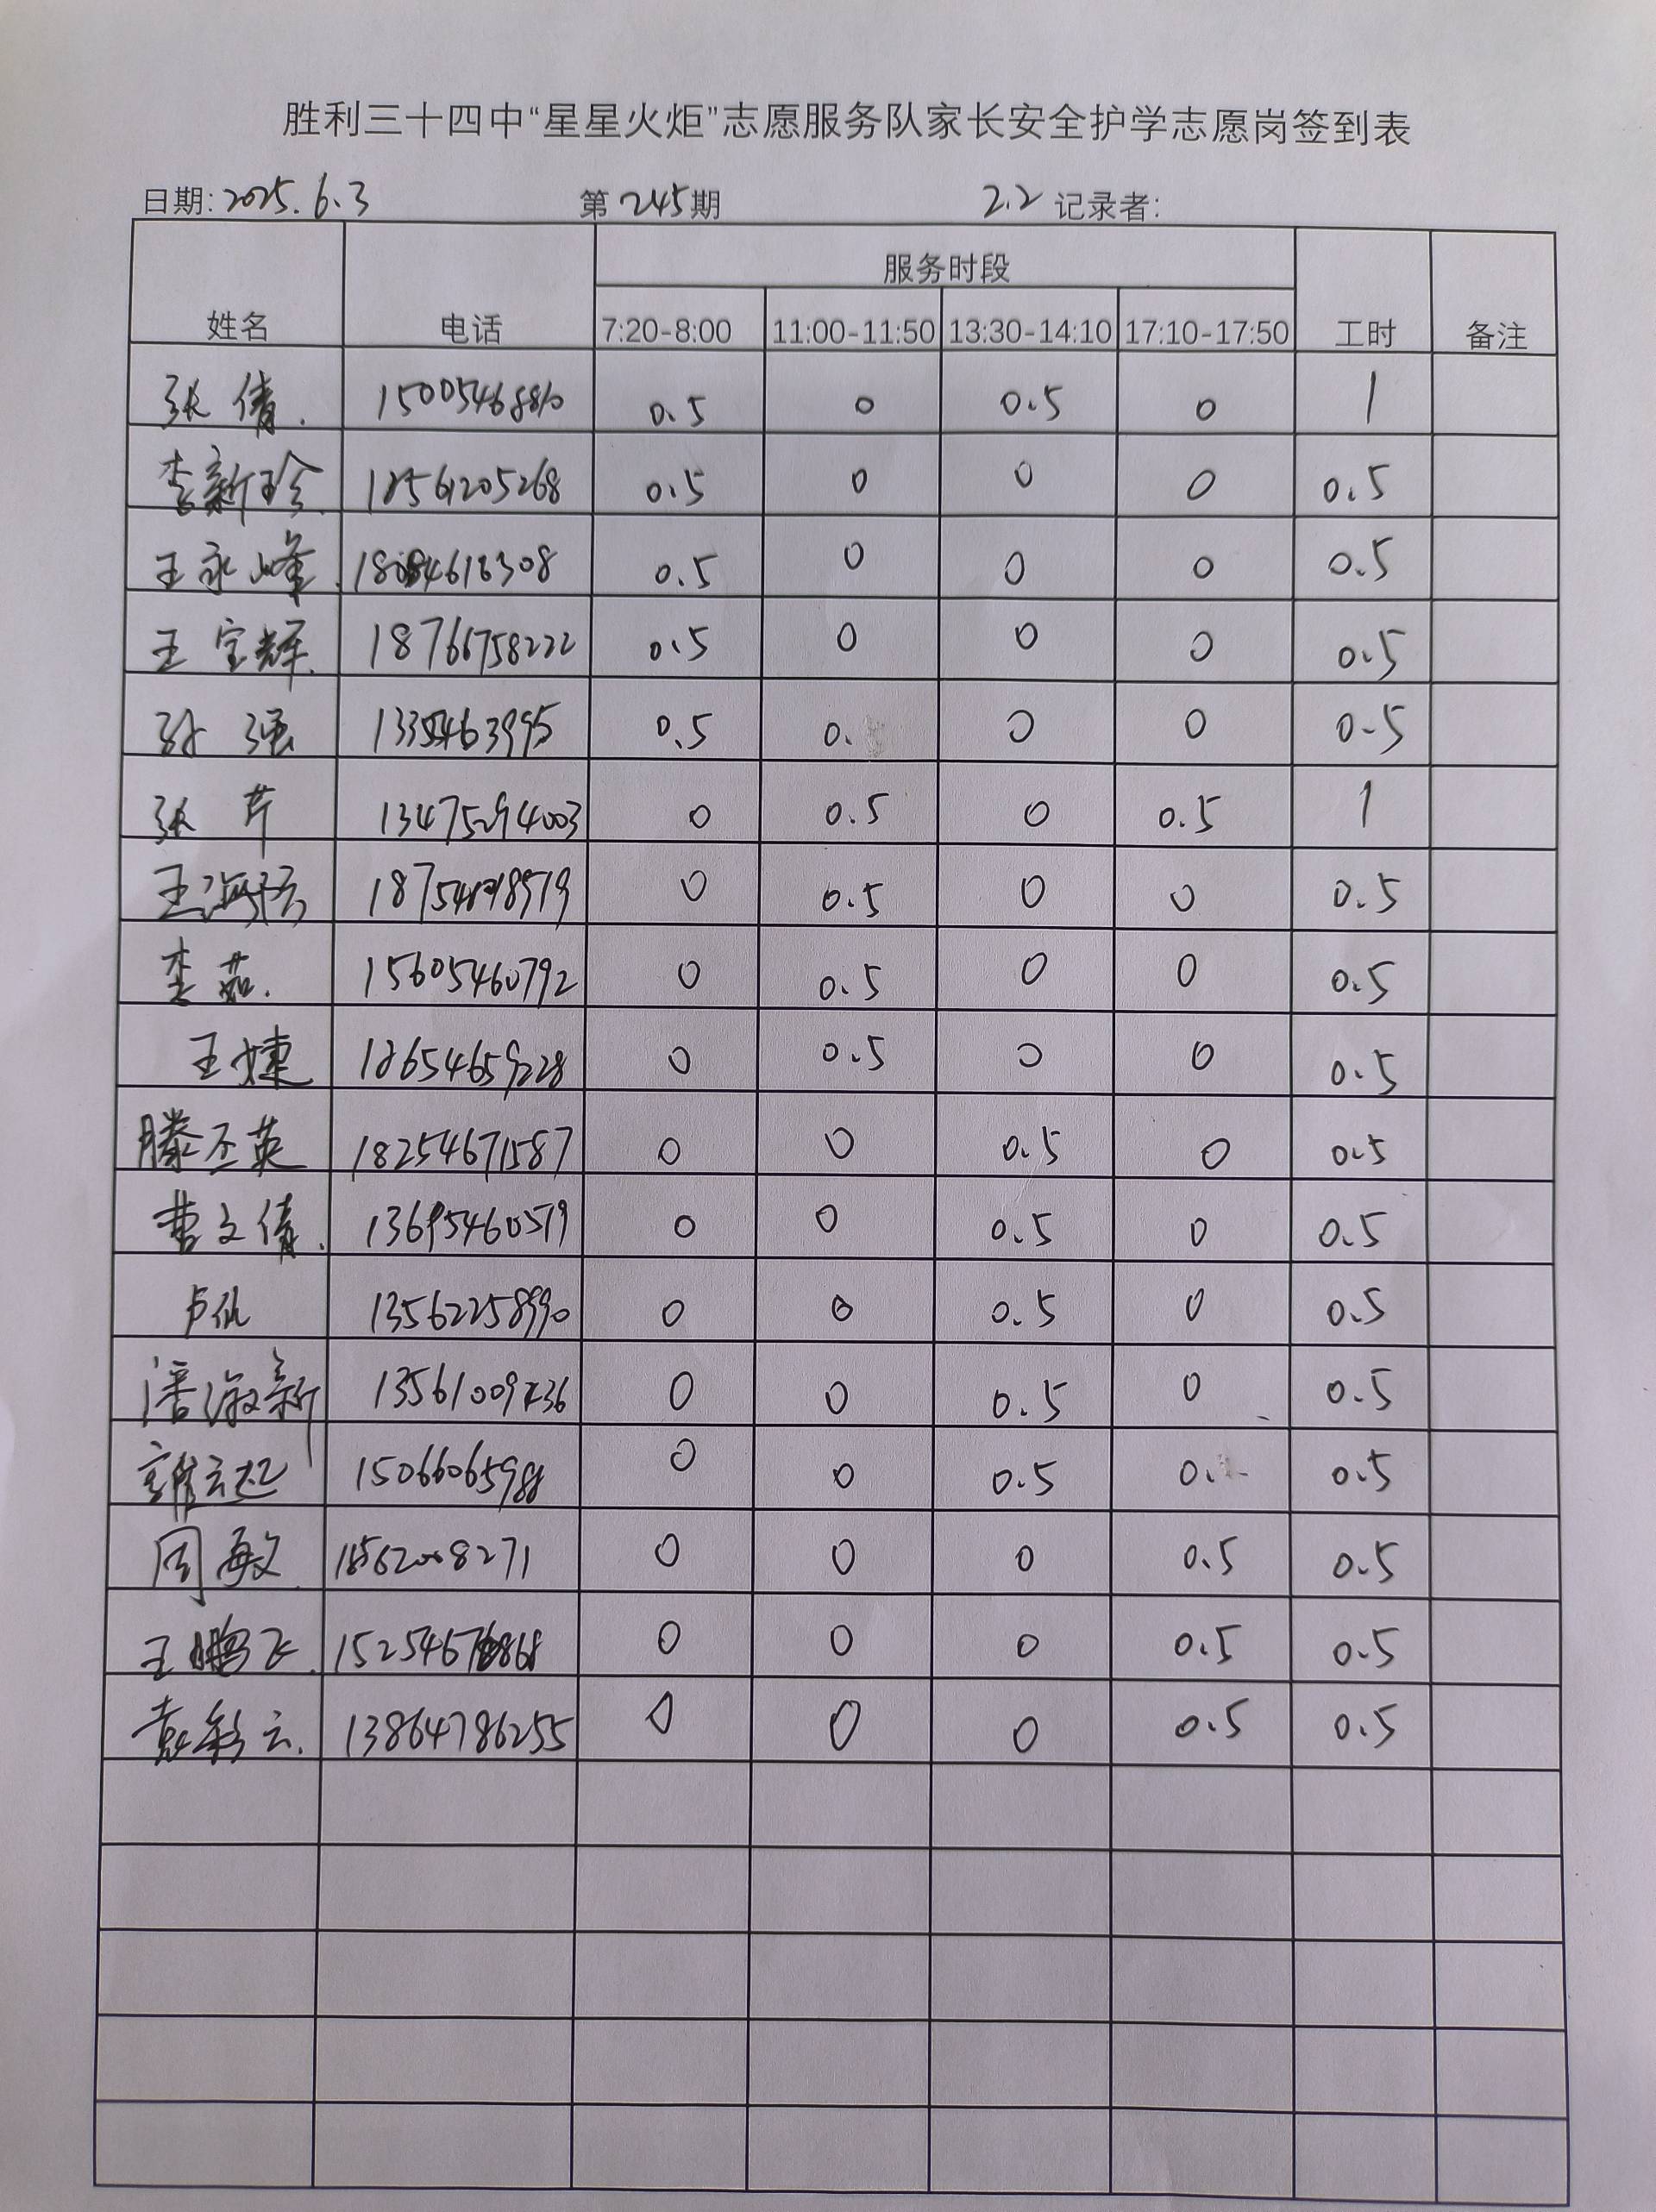 胜利三十四中“星星火炬”志愿服务队家长安全护学志愿岗签到表
日期: 2025.6.3 第 245 期 2.2 记录者:
服务时段
姓名 电话 7:20-8:00 11:00-11:50 13:30-14:10 17:10-17:50 工时 备注
张倩. 0.5 0 0.5 0 1
李新珍. 18561205268 0.5 0 0 0 0.5
王永峰. 0.5 0 0 0 0.5
王宝辉. 18766758222 0.5 0 0 0 0.5
孙强 0.5 0. 0 0 0.5
张芹 13475294003 0 0.5 0 0.5 1
0 0.5 0 0 0.5
李茹. 15605460792 0 0.5 0 0 0.5
王婕 18654659228 0 0.5 0 0 0.5
滕丕英 18254671587 0 0 0.5 0 0.5
曹文倩. 13695460579 0 0 0.5 0 0.5
13562258990 0 0 0.5 0 0.5
潘淑新 0 0 0.5 0 0.5
15066065988 0 0 0.5 0. 0.5
周敏. 0 0 0 0.5 0.5
王鹏飞. 0 0 0 0.5 0.5
袁彩云. 13864786255 0 0 0 0.5 0.5